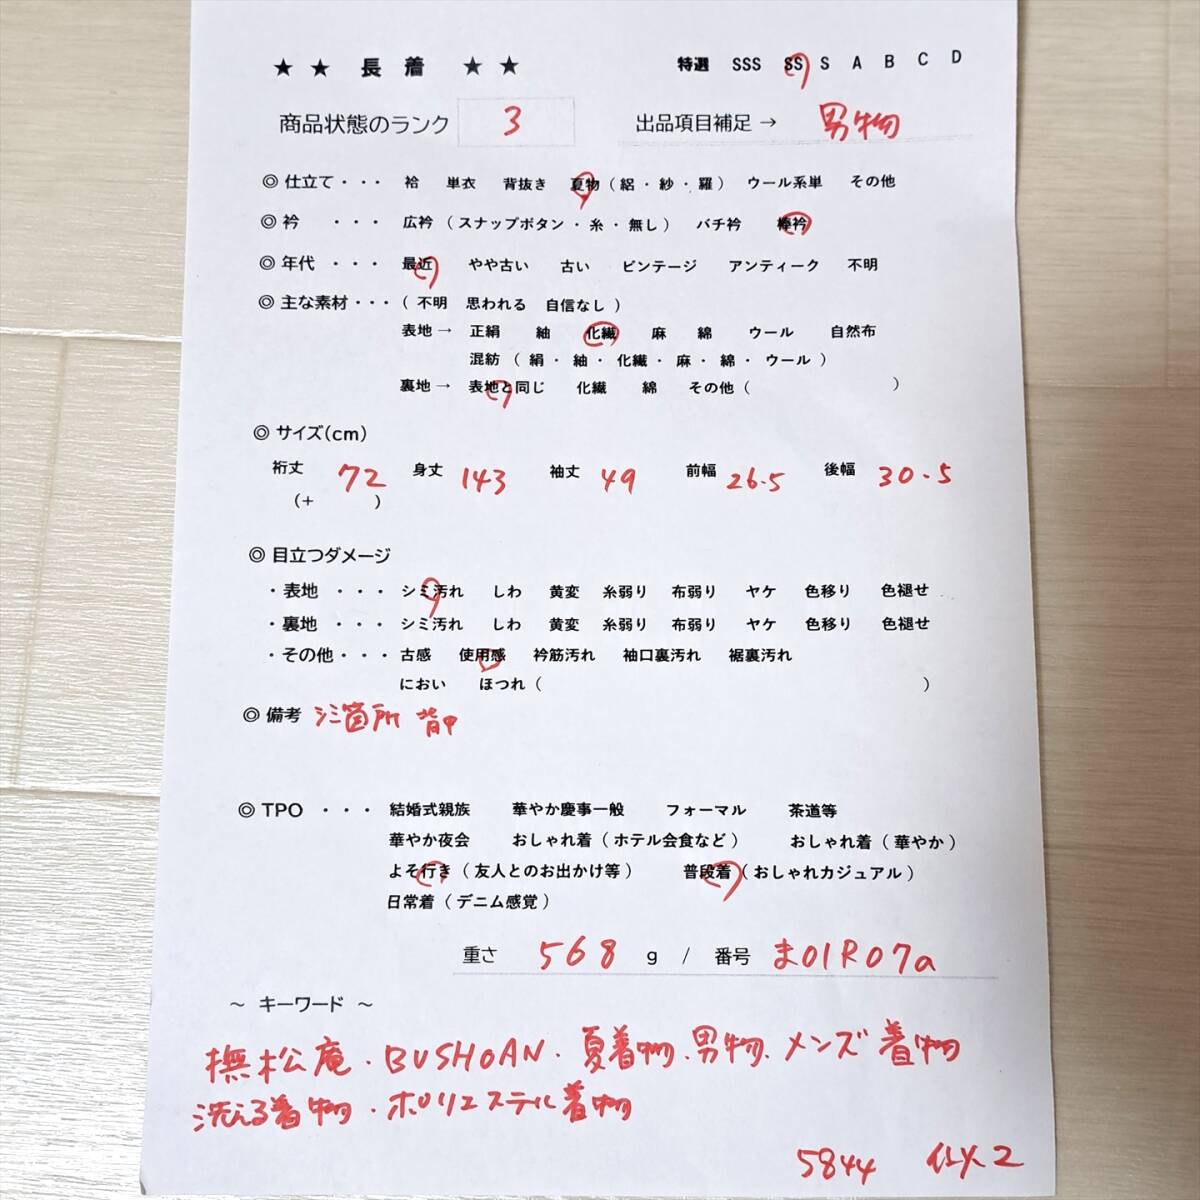 ★ ★ 長 着 ★ ★ 特選 SSS SS S A B C D
商品状態のランク 3 出品項目補足 → 男物
◎ 仕立て・・・ 袷 単衣 背抜き 夏物 ( 絽 ・ 紗 ・ 羅 ) ウール系単 その他
◎ 衿 ・・・ 広衿 ( スナップボタン ・ 糸 ・ 無し ) バチ衿 棒衿
◎ 年代 ・・・ 最近 やや古い 古い ビンテージ アンティーク 不明
◎ 主な素材・・・ ( 不明 思われる 自信なし )
表地 → 正絹 紬 化繊 麻 綿 ウール 自然布
混紡 ( 絹 ・ 紬 ・ 化繊 ・ 麻 ・ 綿 ・ ウール )
裏地 → 表地と同じ 化繊 綿 その他 ( )
◎ サイズ(cm)
裄丈 72 身丈 143 袖丈 49 前幅 26.5 後幅 30.5
(+ )
◎ 目立つダメージ
・表地 ・・・ シミ汚れ しわ 黄変 糸弱り 布弱り ヤケ 色移り 色褪せ
・裏地 ・・・ シミ汚れ しわ 黄変 糸弱り 布弱り ヤケ 色移り 色褪せ
・その他・・・ 古感 使用感 衿筋汚れ 袖口裏汚れ 裾裏汚れ
におい ほつれ ( )
◎ 備考 シミ箇所 背中
◎ TPO ・・・ 結婚式親族 華やか慶事一般 フォーマル 茶道等
華やか夜会 おしゃれ着 ( ホテル会食など ) おしゃれ着 ( 華やか )
よそ行き ( 友人とのお出かけ等 ) 普段着 ( おしゃれカジュアル )
日常着 ( デニム感覚 )
重さ 568 g / 番号 ま01R07a
～ キーワード ～
撫松庵・BUSHOAN・夏着物、男物、メンズ着物
洗える着物・ポリエステル着物
5844